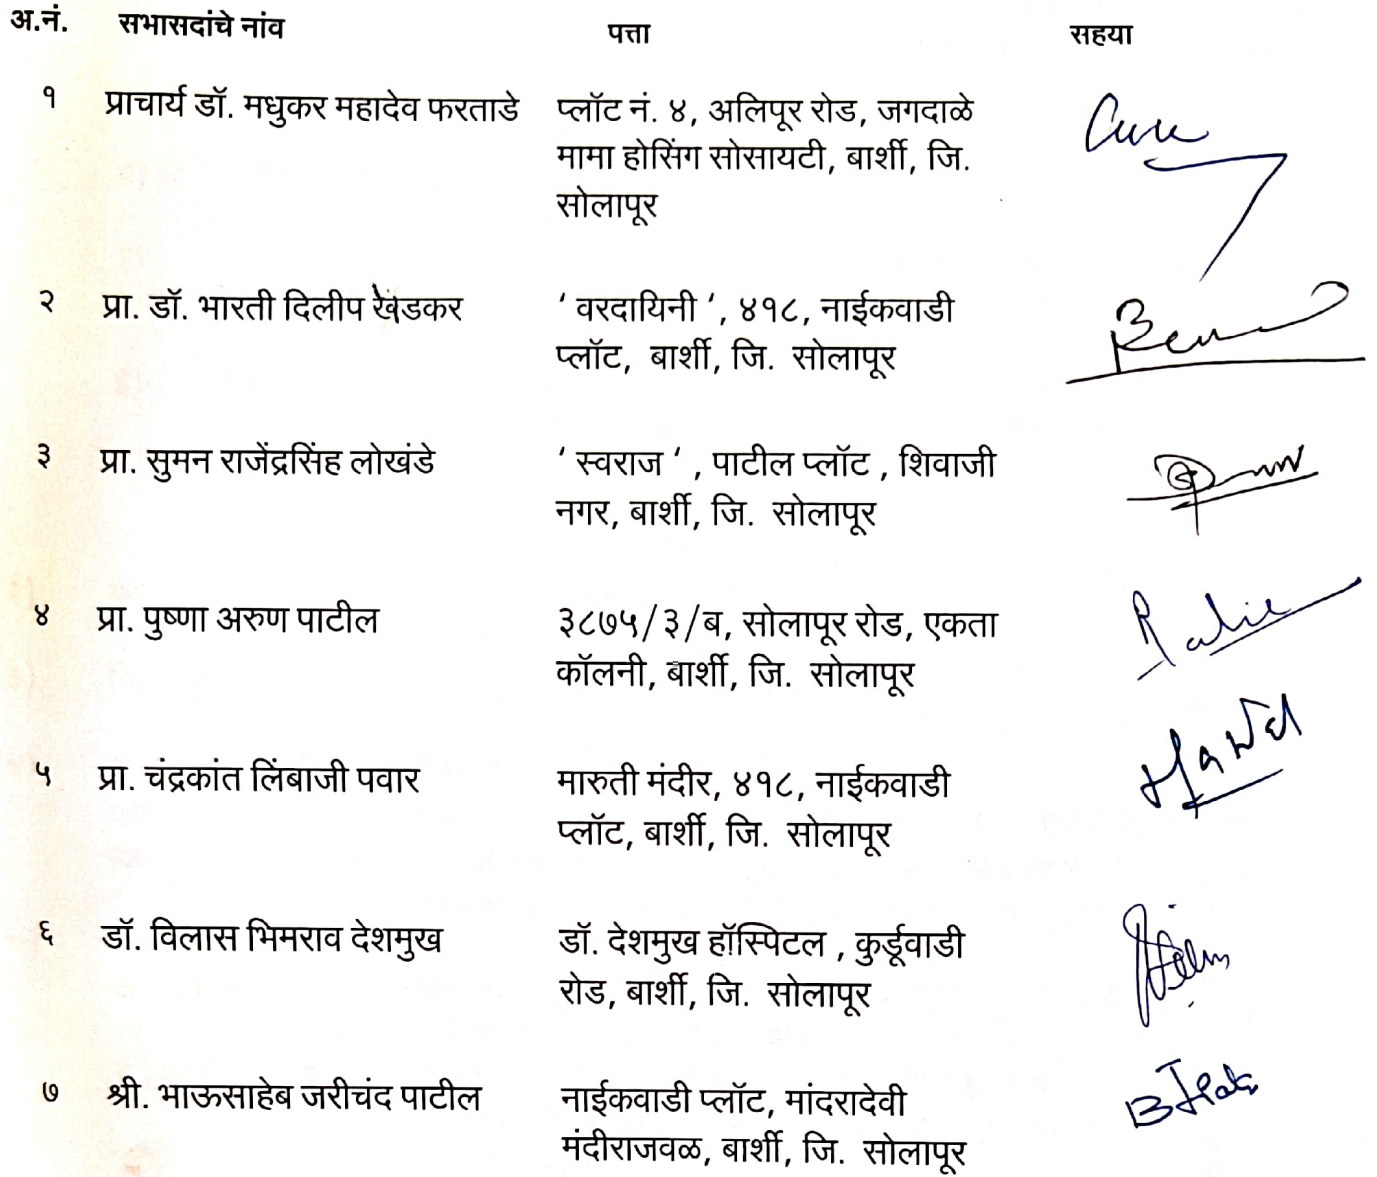 अ.नं. सभासदांचे नांव पत्ता सहया
१ प्राचार्य डॉ. मधुकर महादेव फरताडे प्लॉट नं. ४, अलिपूर रोड, जगदाळे
मामा होसिंग सोसायटी, बार्शी, जि.
सोलापूर
२ प्रा. डॉ. भारती दिलीप रेवडकर ‘ वरदायिनी ‘, ४१८, नाईकवाडी
प्लॉट, बार्शी, जि. सोलापूर
३ प्रा. सुमन राजेंद्रसिंह लोखंडे ‘ स्वराज ‘ , पाटील प्लॉट , शिवाजी
नगर, बार्शी, जि. सोलापूर
४ प्रा. पुष्णा अरुण पाटील ३८७५/३/ब, सोलापूर रोड, एकता
कॉलनी, बार्शी, जि. सोलापूर
५ प्रा. चंद्रकांत लिंबाजी पवार मारुती मंदीर, ४१८, नाईकवाडी
प्लॉट, बार्शी, जि. सोलापूर
६ डॉ. विलास भिमराव देशमुख डॉ. देशमुख हॉस्पिटल , कुर्डूवाडी
रोड, बार्शी, जि. सोलापूर
७ श्री. भाऊसाहेब जरीचंद पाटील नाईकवाडी प्लॉट, मांदरादेवी
मंदीराजवळ, बार्शी, जि. सोलापूर